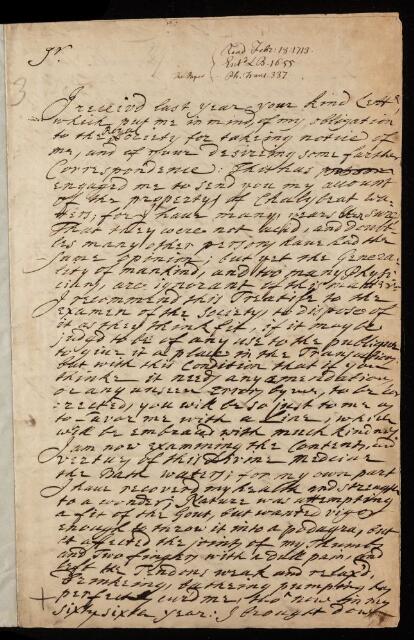 Read Febr: 18. 1713.
The Paper
Ph. Trans. 337
3
Sr.
I received last year your kind Lettr
which put me in mind of my obligation
to the Royal Society for takeing notice of
me, and of your desireing some further
Correspondence: this has
engaged me to send you my account
of the property of Chalybeat wa-
ters, for I have many years been sure
That they were not acid, and doubt
les many other persons have had the
same Opinion; but yet the Genera-
lity of mankind, and too many Physi-
cians, are ignorant of this matter
I recommend this Treatise to the
examen of the Society, to dispose of
it as they think fit, if it may be
judged to be of any use to the publique
to give it a place in the Transactions
but with this Condition that if you
think it need any amendation
or any unseen errors by me, to be Cor-
rected, you will be so just to me as
to favor me with a Line, which
will be embraced with much kindnes,
I am now examining the Contents, and
vertues of this Divine medicine
the Bath waters; for my own part
I have recovered my health and strength
to a wonder, Nature was attempting
a fit of the Gout, but wanted vigor
enough to throw it into a podagra, but
it affected the joints of my thumb
and two fingers with a dull pain and
left the Tendons weak and relax'd,
Drinkeing, batheing pumping has
perfectly cured me tho' now in my
+ sixty sixth year: I brought down